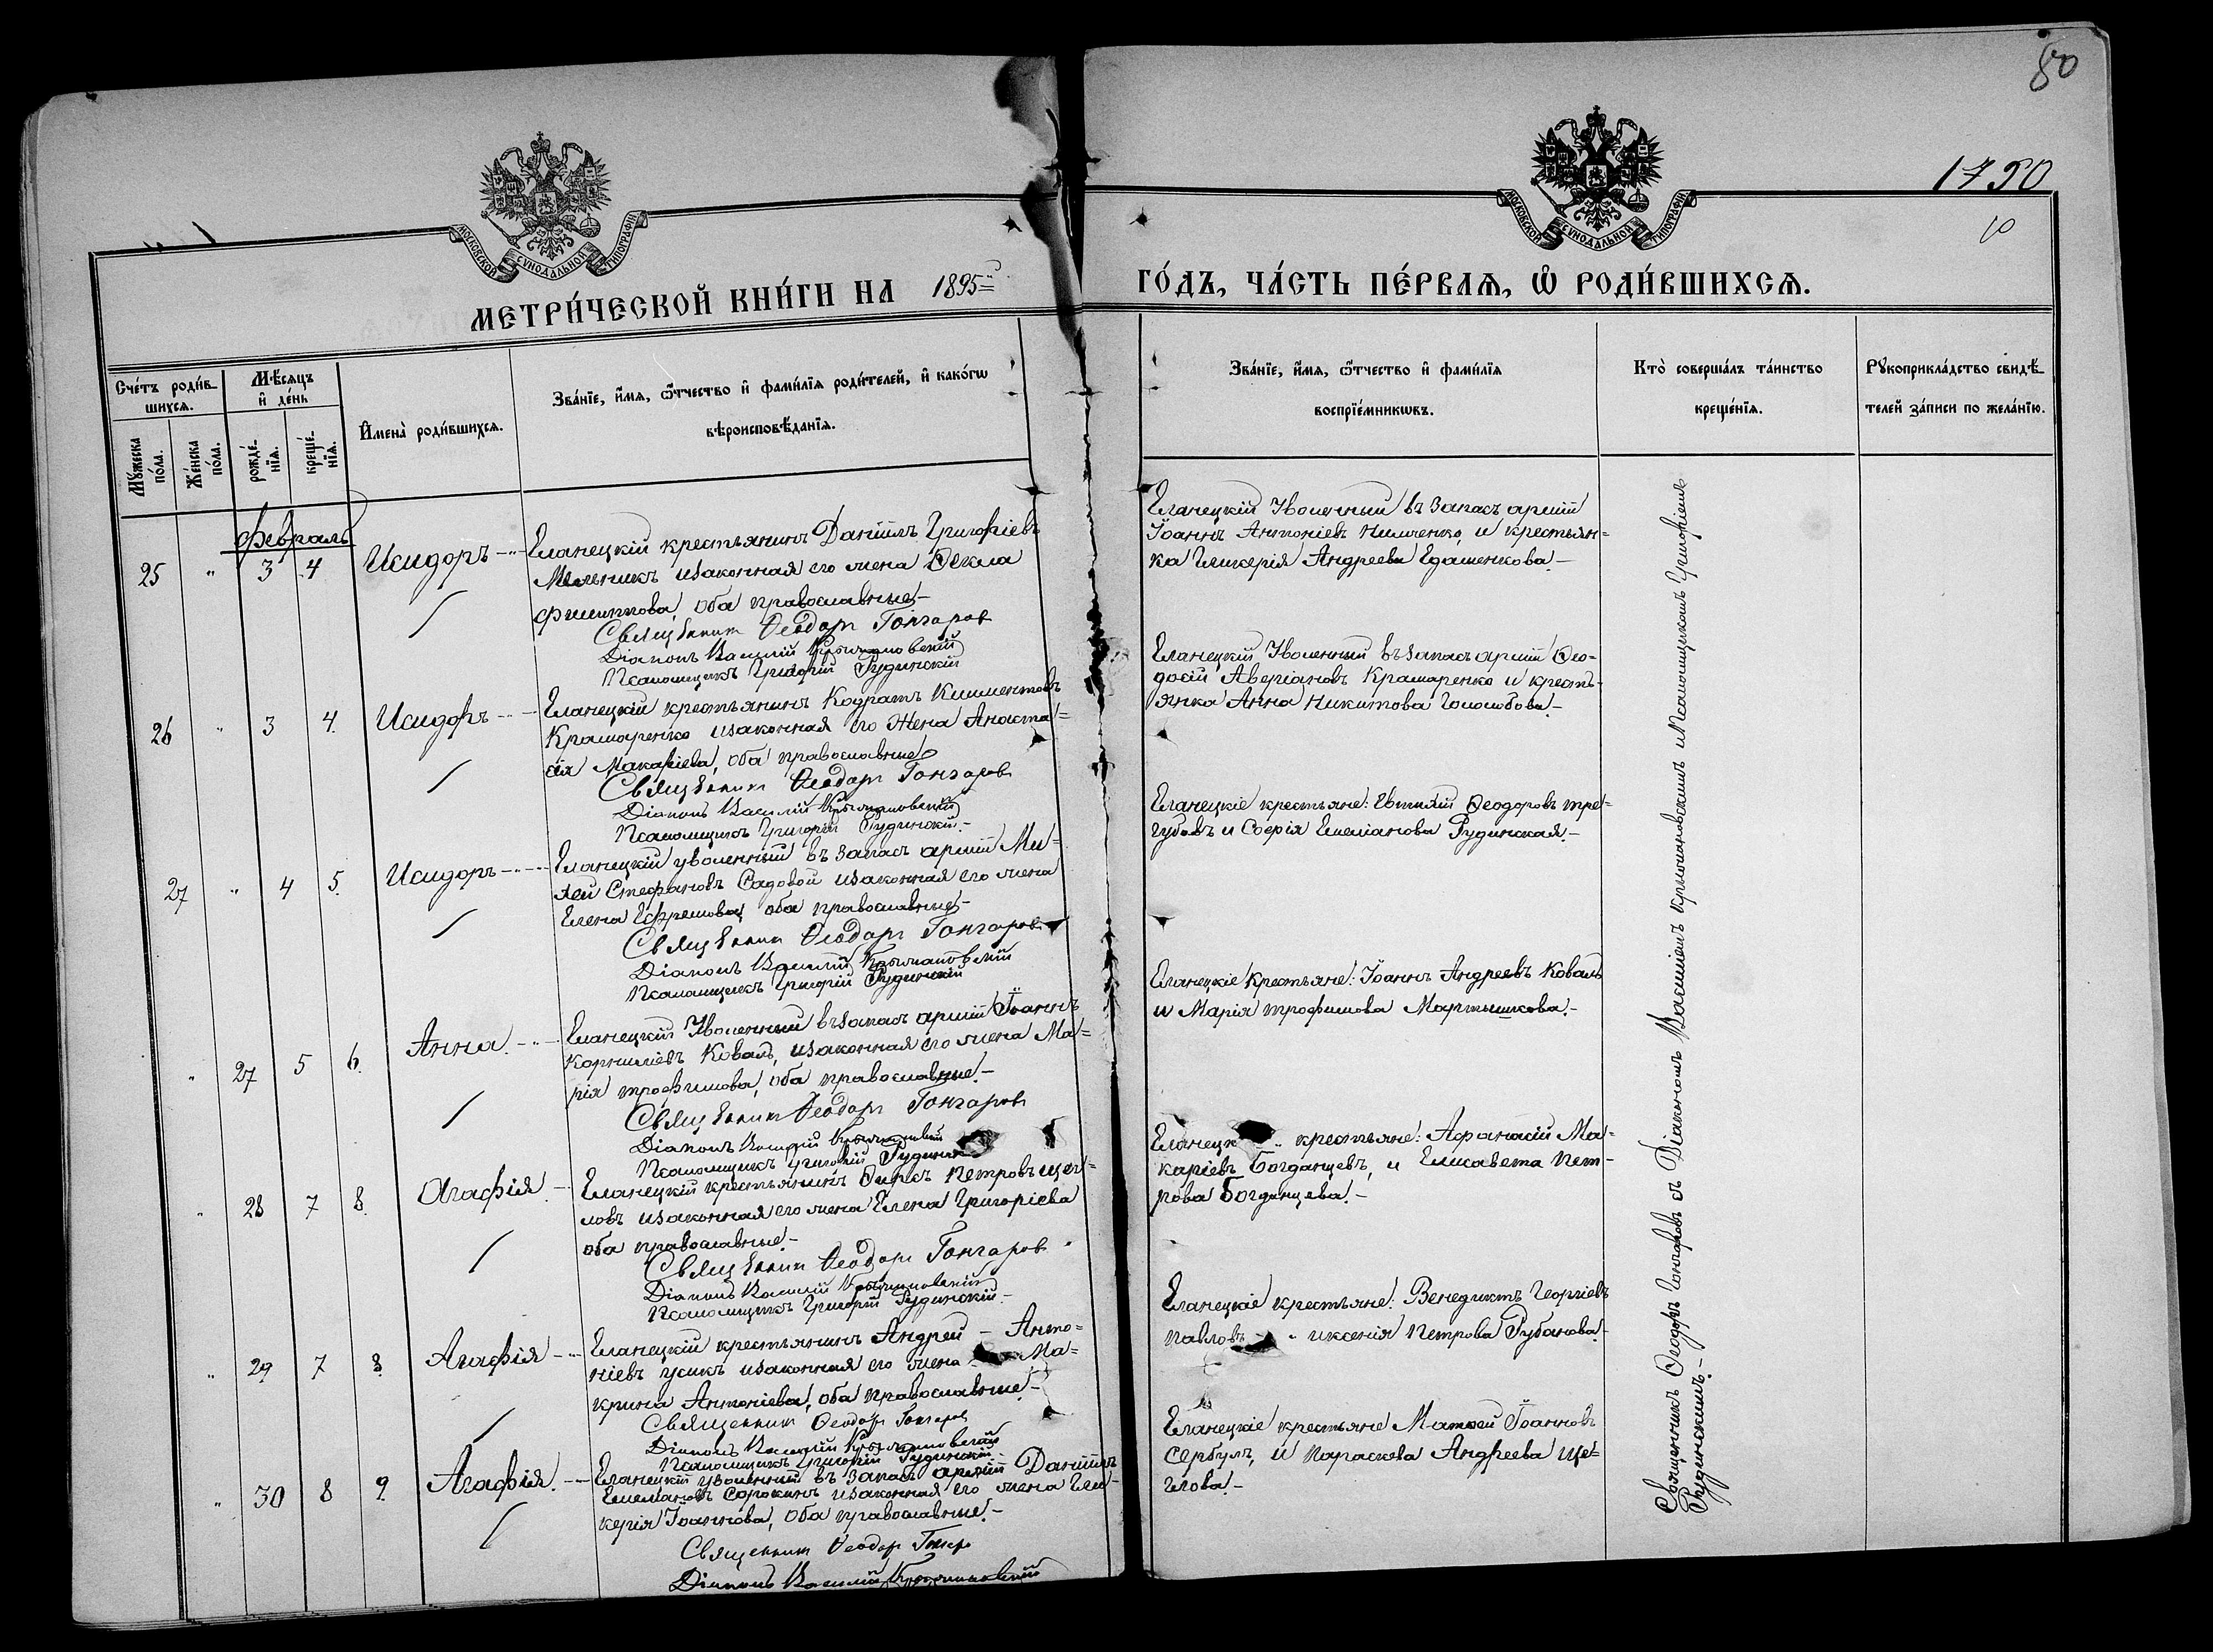 80
1790
МОСКОВСКОЙ СУНОДАЛЬНОЙ ТИПОГРАФІИ
МОСКОВСКОЙ СУНОДАЛЬНОЙ ТИПОГРАФІИ
МЕТРИ́ЧЕСКОЙ КНИ́ГИ НА 1895
ГО́ДЪ, ЧА́СТЬ ПЕ́РВАѦ, Ѿ РОДИ́ВШИХСѦ.
Сче́тъ роди́в-
шихсѧ.
Мꙋ́жеска
по́ла.
Же́нска
по́ла.
Мѣ́сѧцъ
и҆ де́нь
рожде́-
нїѧ.
креще́-
нїѧ.
И҆мена̀ роди́вшихсѧ.
Зва́нїе, и҆́мѧ, ѻ҆́тчество и҆ фами́лїѧ роди́телей, и҆ како́гѡ
вѣроисповѣ́данїѧ.
Зва́нїе, и҆́мѧ, ѻ҆́тчество и҆ фами́лїѧ
воспрїе́мникѡвъ.
Кто̀ соверша́лъ та́инство
креще́нїѧ.
Рꙋкоприкла́дство свидѣ́-
телей за́писи по жела́нїю.
Февраль
25 " 3 4 Исидоръ
Еланецкій крестьянинъ Даніилъ Григоріевъ
Мельникъ и законная его жена Ѳекла
Филиппова, оба православные.-
Священникъ Ѳеодоръ Гончаровъ
Діаконъ Василій Крыжановскій
Псаломщикъ Григорій Рудинскій
Еланецкій Уволенный въ запасъ арміи
Іоаннъ Антоніевъ Нимченко, и крестьян=
ка Гликерія Андреева
26 " 3 4. Исидоръ
Еланецкій крестьянинъ Кодратъ Климентовъ
Крамаренко и законная его жена Анаста=
сія Макаріева, оба православные
Священникъ Ѳеодоръ Гончаровъ
Діаконъ Василій Крыжановскій
Псаломщикъ Григорій Рудинскій.-
Еланецкій Уволенный въ запасъ арміи Ѳео=
досій Аверіановъ Крамаренко и кресть-
янка Анна Никитова
27 " 4 5. Исидоръ
Еланецкій уволенный въ запасъ арміи Ми=
хей Стефановъ Садовой и законная его жена
Елена Ефремова, оба православные.-
Священникъ Ѳеодоръ Гончаровъ
Діаконъ Василій Крыжановскій
Псаломщикъ Григорій Рудинскій
Еланецкіе крестьяне: Евтихій Ѳеодоровъ Тре=
губовъ и Софія Емеліанова Рудинская.-
" 27 5 6. Анна.
Еланецкій Уволенный въ запасъ арміи Іоаннъ
Корниліевъ Коваль, и законная его жена Ма=
рія Трофимова, оба православные.-
Священникъ Ѳеодоръ Гончаровъ
Діаконъ Василій Крыжановскій
Псаломщикъ Григорій
Еланецкіе крестьяне: Іоаннъ Андреевъ Коваль
и Марія Трофимова Мартышкова.-
" 28 7 8. Агафія.
Еланецкій крестьянинъ Ѳирсъ Петровъ Щег=
ловъ и законная его жена Елена Григоріева
оба православные.-
Священникъ Ѳеодоръ Гончаровъ
Діаконъ Василій Крыжановскій
Псаломщикъ Григорій Рудинскій.-
крестьяне: Афанасій Ма=
каріевъ Богданцевъ, и Елисавета Пет-
рова Богданцева.-
" 29 7 8. Агафія
Еланецкій крестьянинъ Андрей - Анто=
ніевъ Усикъ и законная его жена Ма=
крина Антоніева, оба православные.-
Священникъ Ѳеодоръ Гончаровъ
Діаконъ Василій Крыжановскій
Псаломщикъ Григорій Рудинскій.
Еланецкіе крестьяне: Венедиктъ Георгіевъ
Павловъ и Ксенія Петрова Рубанова.-
" 30 8 9. Агафія.
Еланецкій уволенный въ запасъ арміи Даніилъ
Емеліановъ Сорокинъ и законная его жена Гли-
керія Іоаннова, оба православные.-
Священникъ Ѳеодоръ
Діаконъ Василій Крыжановскій
Еланецкіе крестьяне Матѳей Іоанновъ
Сербулъ, и Параскева Андреева Ще=
глова.-
Священникъ Ѳеодоръ Гончаровъ съ Діакономъ Василіемъ Крыжановскимъ и Псаломщикомъ Григоріемъ
Рудинскимъ.-